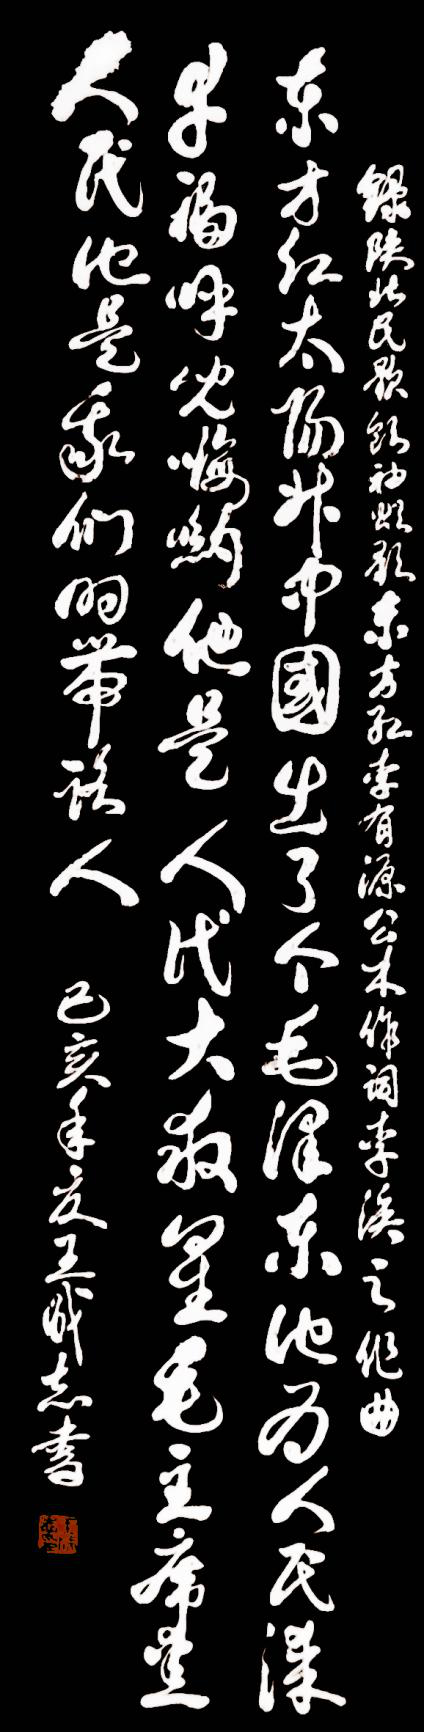 録陕北民歌领袖颂歌东方红李有源公木作词李溪之作曲
东方红太阳升中國出了个毛泽东他为人民谋
幸福呼兒嗨哟他是人民大救星毛主席是
人民他是我们的带路人
己亥年夏王成志書